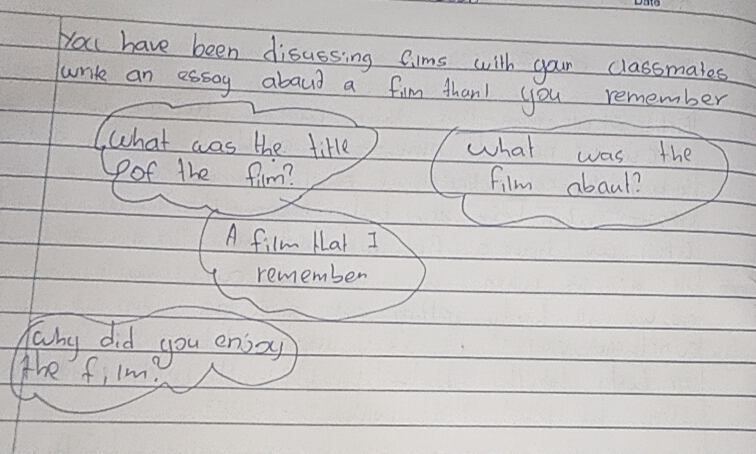 Date
You have been disussing films with your classmates
write an essay abaud a film thant you remember
What was the title
of the film?
What was the
film abaut?
A film that I
remember
Why did you enjoy
the film?